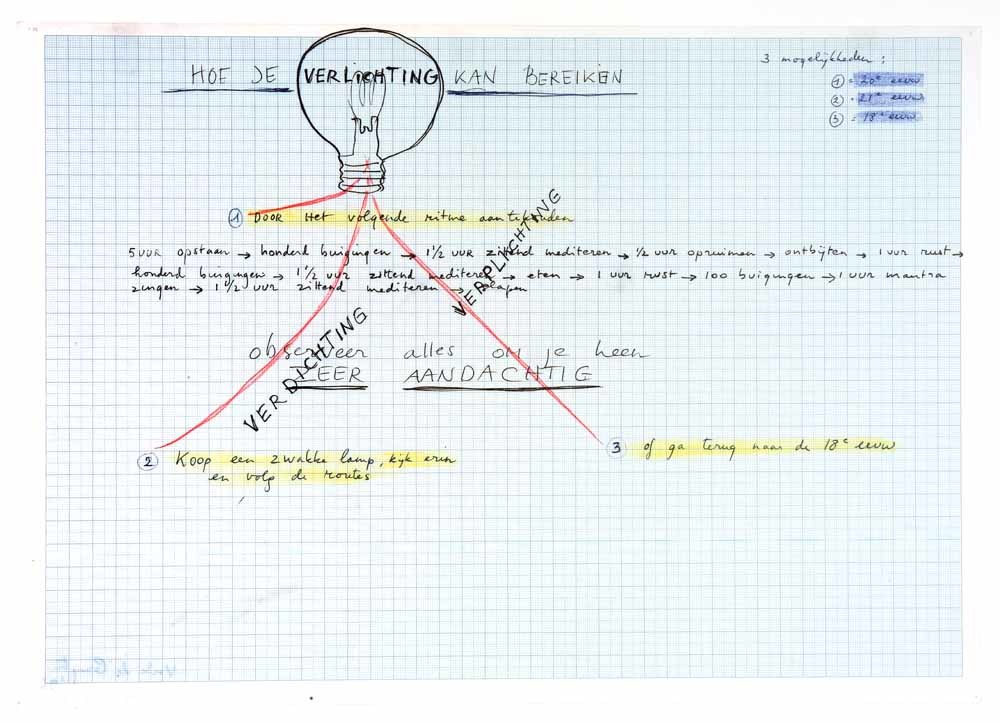 HOE JE VERLICHTING KAN BEREIKEN
3 mogelijkheden :
① = 20e eeuw
② = 21e eeuw
③ = 18e eeuw
① DOOR Het volgende ritme aan te houden
5 UUR opstaan → honderd buigingen → 1 1/2 uur zittend mediteren → 1/2 uur opruimen → ontbijten → 1 uur rust →
honderd buigingen → 1 1/2 uur zittend mediteren → eten → 1 uur rust → 100 buigingen → 1 uur mantra
zingen → 1 1/2 uur zittend mediteren → slapen
VERPLICHTING
VERDICHTING
observeer alles om je heen
ZEER AANDACHTIG
② Koop een zwakke lamp, kijk erin
en volg de routes
③ of ga terug naar de 18e eeuw